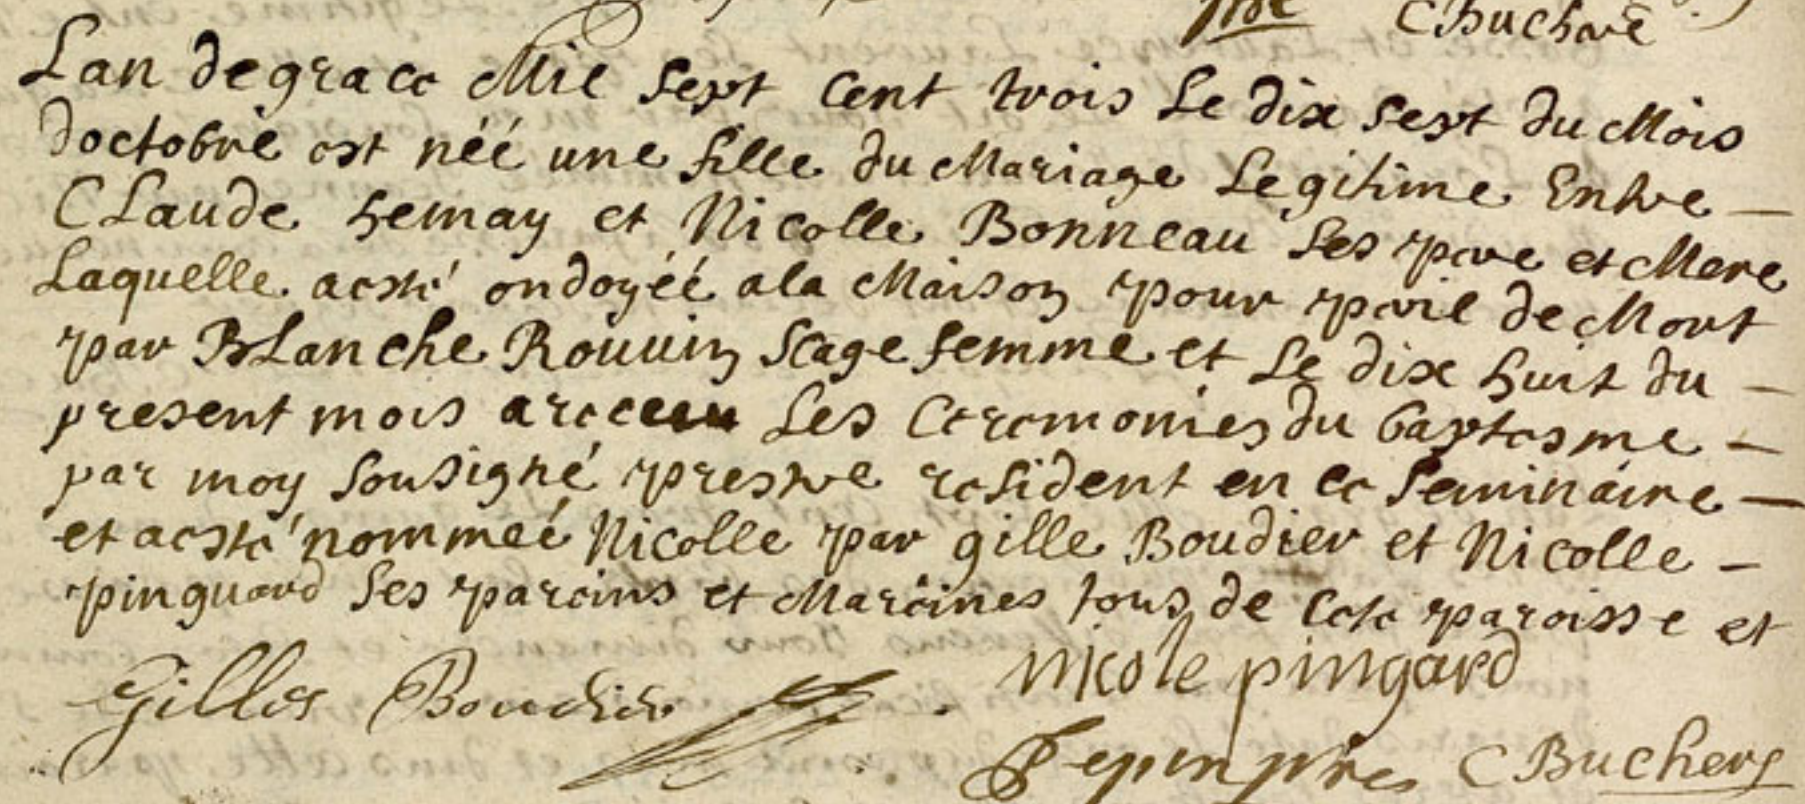 C Buchere
Lan de grace Mil sept cent trois Le dix sept du Mois
doctobre est néé une fille du Mariage Legitime Entre
CLaude hemay et Nicolle Bonneau Ses pere et Mere
Laquelle aesté ondoyéé ala Maison pour peril de Mort
par BLanche Rouuin Sage femme et Le dix huit du
present mois a receu Les Ceremonies du baptesme
par moy sousigné prestre resident en ce seminaire
et aesté nommeé Nicolle par gille Boudier et Nicolle
pinguard Ses pareins et Mareines tous de cete paroisse et
Gilles Boudier
nicole pingard
C Buchere